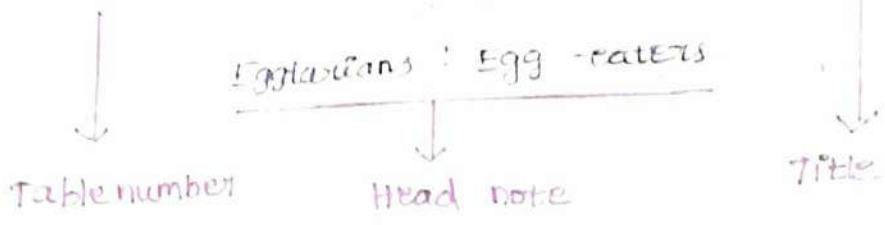 Eggtarians : Egg -eaters
Table number Head note Title